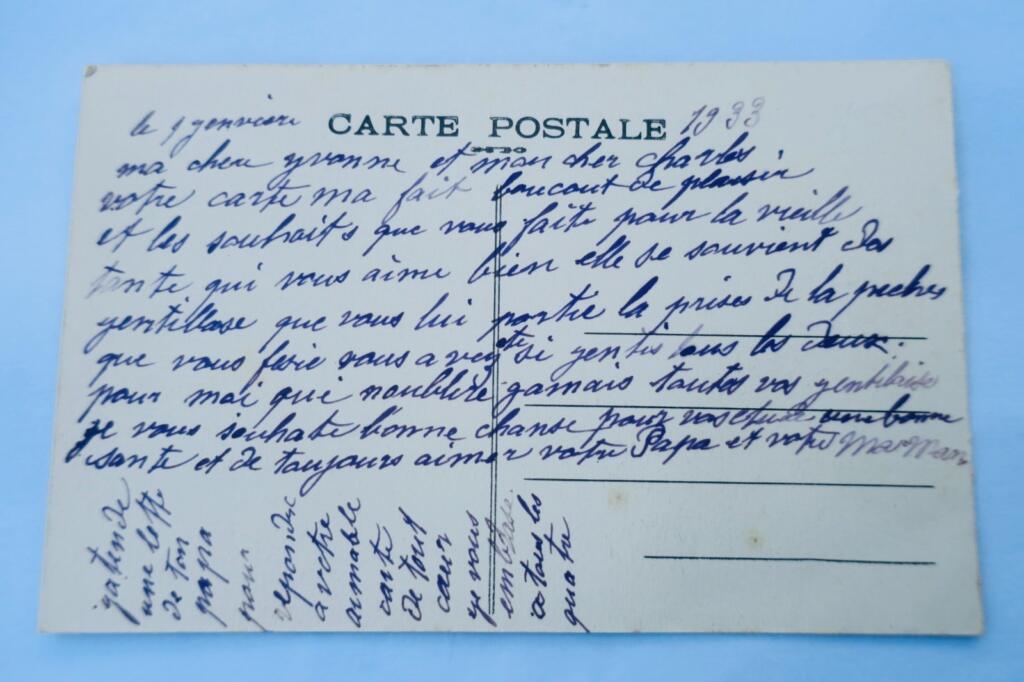 le 9 genvière CARTE POSTALE 1933
ma cheu yvonne et mon cher charles
votre carte ma fait boucout de plaisir
et les souhaits que vous faite pour la vieille
tante qui vous aime bien elle se souvient des
gentillase que vous lui portie la prises de la peches
que vous fesie vous avez ete si gentis tous les deux.
pour moi qui noublire gamais toutes vos gentilaise
je vous souhate bonne chanse pour vos etude une bonne
sante et de toujours aimer votre Papa et votre MarMan
gatende
une lette
de ton
papa
pour
reponduc
a votre
aimable
carte
de tout
cœur
ge vous
embrase.
a tous les
quatre